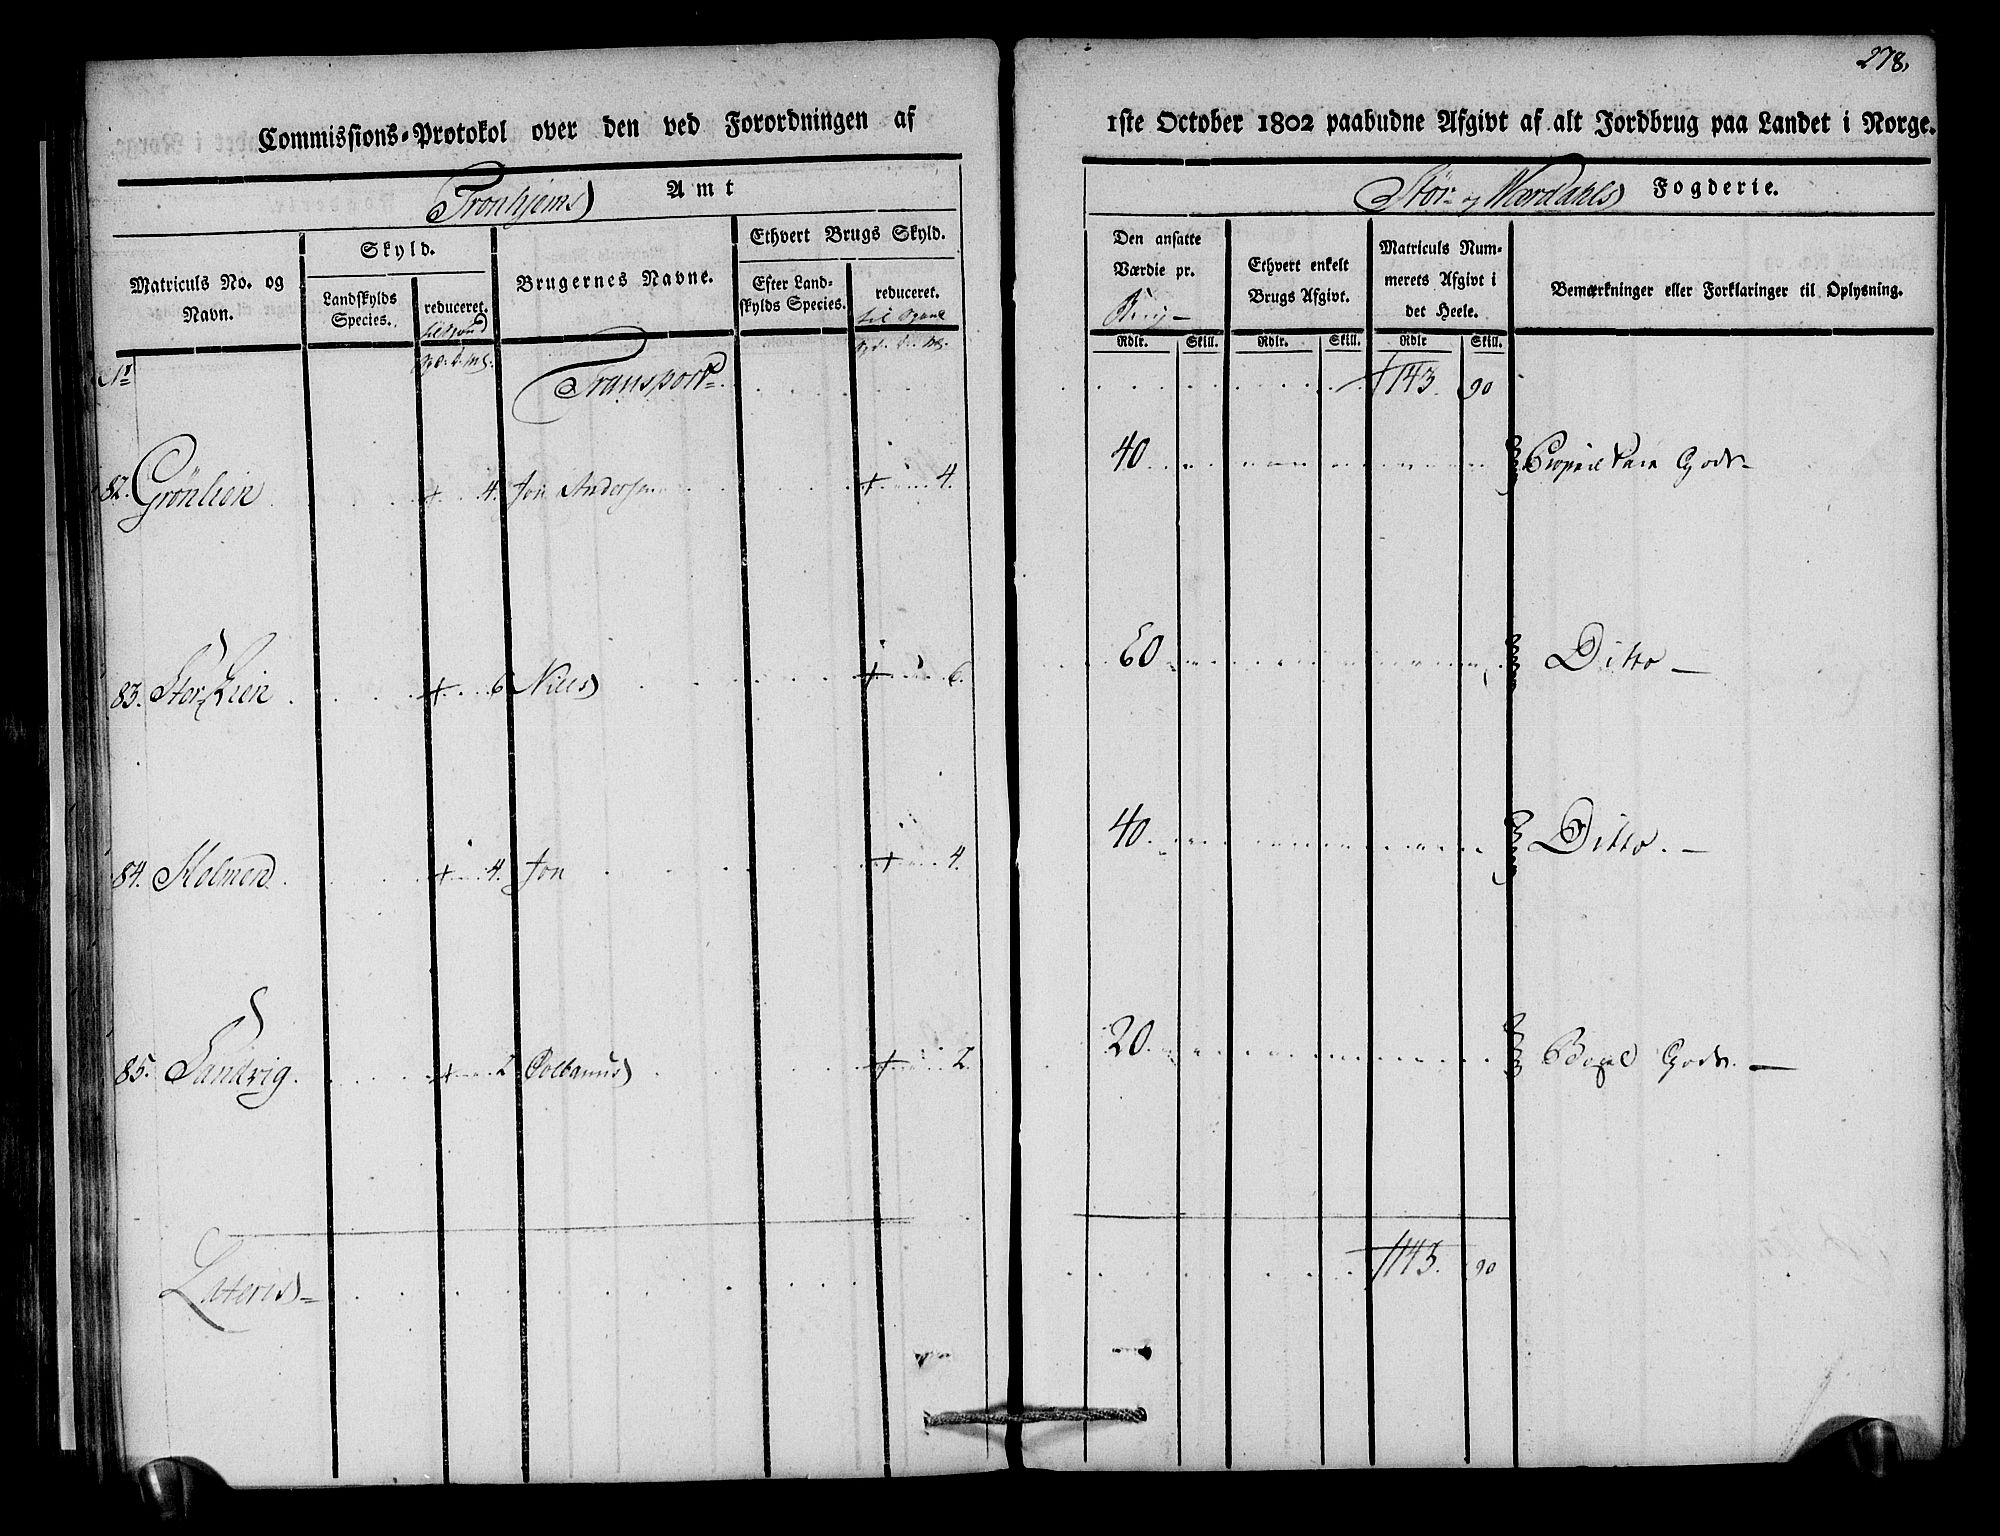 278.
Commissions-Protokol over den ved Forordningen af
1ste October 1802 paabudne Afgivt af alt Jordbrug paa Landet i Norge.
Tronhjems Amt
Stør- og Værdahls Fogderie.
Matriculs No. og Navn.
Skyld.
Landskylds Species.
reduceret.
Brugernes Navne.
Ethvert Brugs Skyld.
Efter Landskylds Species.
reduceret.
til
Den ansatte Værdie pr.
Ethvert enkelt Brugs Afgivt.
Matriculs Nummerets Afgivt i det Heele.
Bemærkninger eller Forklaringer til Oplysning.
Rdlr. Skill. Rdlr. Skill. Rdlr Skill.
No Transport 1143. 90
82. Grønlien 4. Jon Andersen 4. 40 Gods
83. Stor Lien 6 Niels 6. 60 Ditto
84. Holmen 4. Jon 4. 40. Ditto.
85. Sandvig. 2 2. 20. Gods.
Lateris 1143. 90